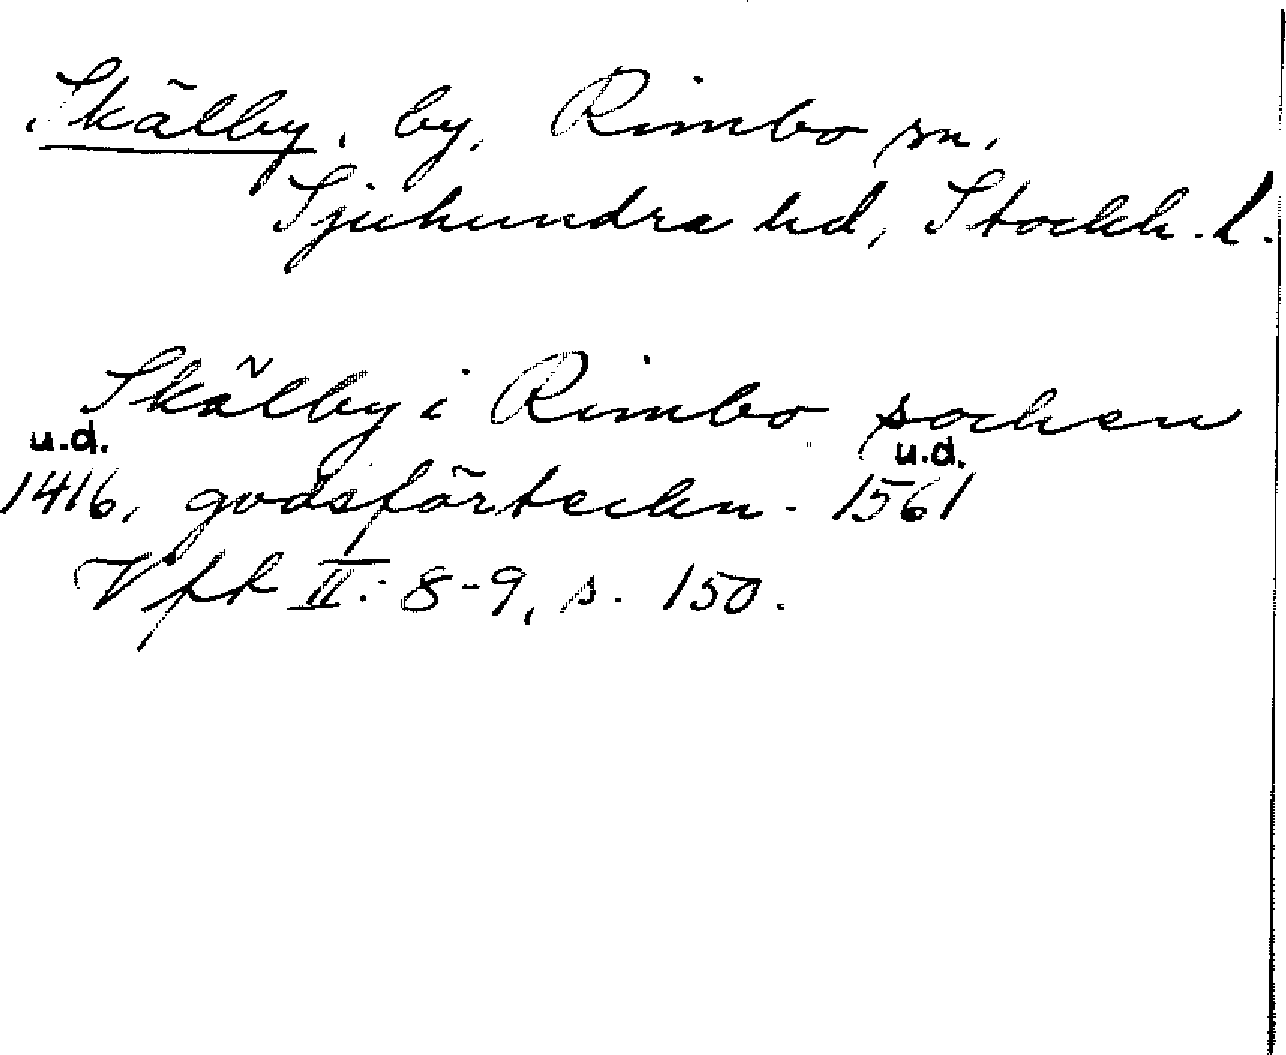 Skälby, by, Rimbo sn,
Sjuhundra hd, Stockh. l.
Skälby i Rimbo socken
u.d. u.d.
1416, godsförteckn. 1561
Vfk II: 8-9, s. 150.